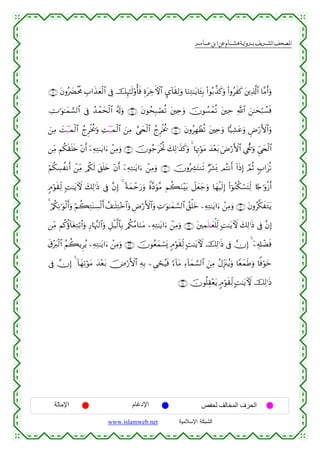 المصحف الشريف برواية هشام عن ابن عامر
وَأَمَّا ٱلَّذِينَ كَفَرُوا۟ وَكَذَّبُوا۟ بِـَٔايَـٰتِنَا وَلِقَآئِ ٱلْـَٔاخِرَةِ فَأُو۟لَـٰٓئِكَ فِى ٱلْعَذَابِ مُحْضَرُونَ
فَسُبْحَـٰنَ ٱللَّهِ حِينَ تُمْسُونَ وَحِينَ تُصْبِحُونَ وَلَهُ ٱلْحَمْدُ فِى ٱلسَّمَـٰوَٰتِ
وَٱلْأَرْضِ وَعَشِيًّا وَحِينَ تُظْهِرُونَ يُخْرِجُ ٱلْحَىَّ مِنَ ٱلْمَيْتِ وَيُخْرِجُ ٱلْمَيْتَ مِنَ
ٱلْحَىِّ وَيُحْىِ ٱلْأَرْضَ بَعْدَ مَوْتِهَا ۚ وَكَذَٰلِكَ تُخْرَجُونَ وَمِنْ ءَايَـٰتِهِۦٓ أَنْ خَلَقَكُم مِّن
تُرَابٍ ثُمَّ إِذَآ أَنتُم بَشَرٌ تَنتَشِرُونَ وَمِنْ ءَايَـٰتِهِۦٓ أَنْ خَلَقَ لَكُم مِّنْ أَنفُسِكُمْ
أَزْوَٰجًا لِّتَسْكُنُوٓا۟ إِلَيْهَا وَجَعَلَ بَيْنَكُم مَّوَدَّةً وَرَحْمَةً ۚ إِنَّ فِى ذَٰلِكَ لَـَٔايَـٰتٍ لِّقَوْمٍ
يَتَفَكَّرُونَ وَمِنْ ءَايَـٰتِهِۦ خَلْقُ ٱلسَّمَـٰوَٰتِ وَٱلْأَرْضِ وَٱخْتِلَـٰفُ أَلْسِنَتِكُمْ وَأَلْوَٰنِكُمْ ۚ
إِنَّ فِى ذَٰلِكَ لَـَٔايَـٰتٍ لِّلْعَـٰلَمِينَ وَمِنْ ءَايَـٰتِهِۦ مَنَامُكُم بِٱلَّيْلِ وَٱلنَّهَارِ وَٱبْتِغَآؤُكُم مِّن
فَضْلِهِۦٓ ۚ إِنَّ فِى ذَٰلِكَ لَـَٔايَـٰتٍ لِّقَوْمٍ يَسْمَعُونَ وَمِنْ ءَايَـٰتِهِۦ يُرِيكُمُ ٱلْبَرْقَ
خَوْفًا وَطَمَعًا وَيُنَزِّلُ مِنَ ٱلسَّمَآءِ مَآءً فَيُحْىِۦ بِهِ ٱلْأَرْضَ بَعْدَ مَوْتِهَآ ۚ إِنَّ فِى
ذَٰلِكَ لَـَٔايَـٰتٍ لِّقَوْمٍ يَعْقِلُونَ
الحرف المخالف لحفص
الإدغام
الإمالة
www.islamweb.net
الشبكة الإسلامية